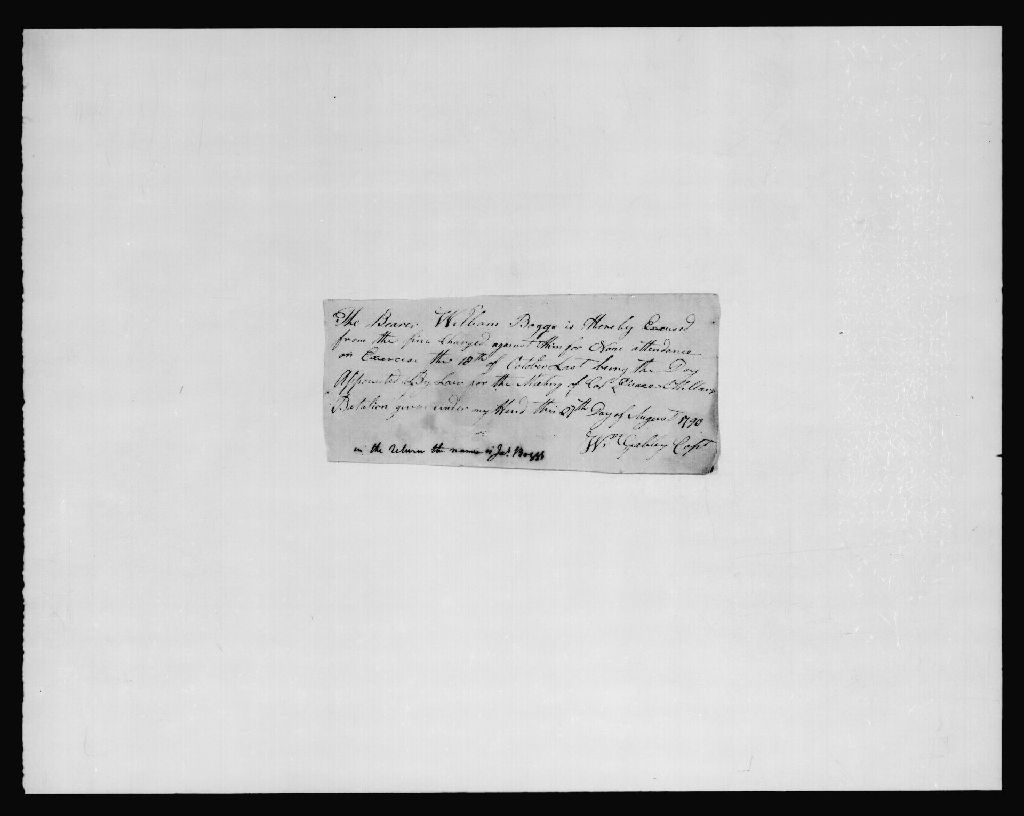 The Bearer William Boggs is Hereby Excused
from the fine charged against Him for None attendance
on Exercise the 18th of October Last being the Day
Appointed By Law for the Meeting of Col.
Batalion given under my Hand this 27th Day of August 1790
Wm Capt
in the return the name is Jas. Boggs